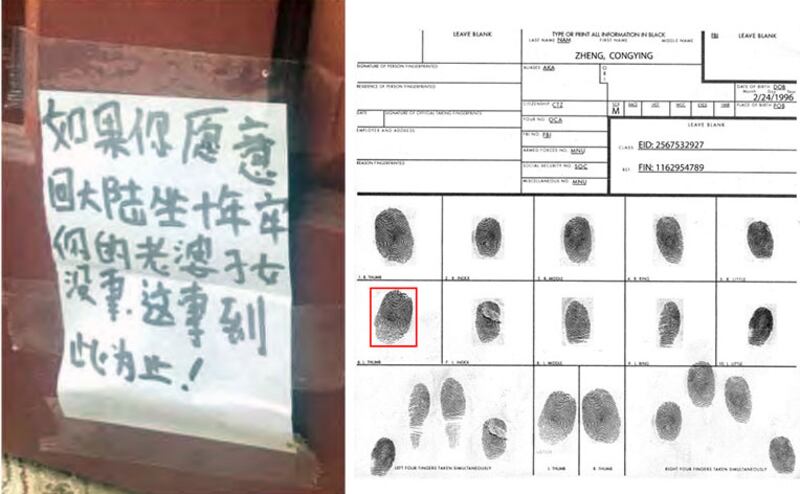 如果你愿意
回大陆坐十年牢
你的老婆子女
没事.这事到
此为止!
LEAVE BLANK
TYPE OR PRINT ALL INFORMATION IN BLACK
LAST NAME NAM FIRST NAME MIDDLE NAME
FBI LEAVE BLANK
ZHENG, CONGYING
SIGNATURE OF PERSON FINGERPRINTED
ALIASES AKA
O
R
I
RESIDENCE OF PERSON FINGERPRINTED
DATE OF BIRTH DOB
Month Day Year
2/24/1996
CITIZENSHIP CTZ
SEX
M
RACE HGT. WGT. EYES HAIR
PLACE OF BIRTH POB
DATE SIGNATURE OF OFFICIAL TAKING FINGERPRINTS
YOUR NO. OCA
LEAVE BLANK
EMPLOYER AND ADDRESS
FBI NO. FBI
CLASS EID: 2567532927
ARMED FORCES NO. MNU
REASON FINGERPRINTED
SOCIAL SECURITY NO. SOC
REF. FIN: 1162954789
MISCELLANEOUS NO. MNU
1. R. THUMB 2. R. INDEX 3. R. MIDDLE 4. R. RING 5. R. LITTLE
6. L. THUMB 7. L. INDEX 8. L. MIDDLE 9. L. RING 10. L. LITTLE
LEFT FOUR FINGERS TAKEN SIMULTANEOUSLY L. THUMB R. THUMB RIGHT FOUR FINGERS TAKEN SIMULTANEOUSLY